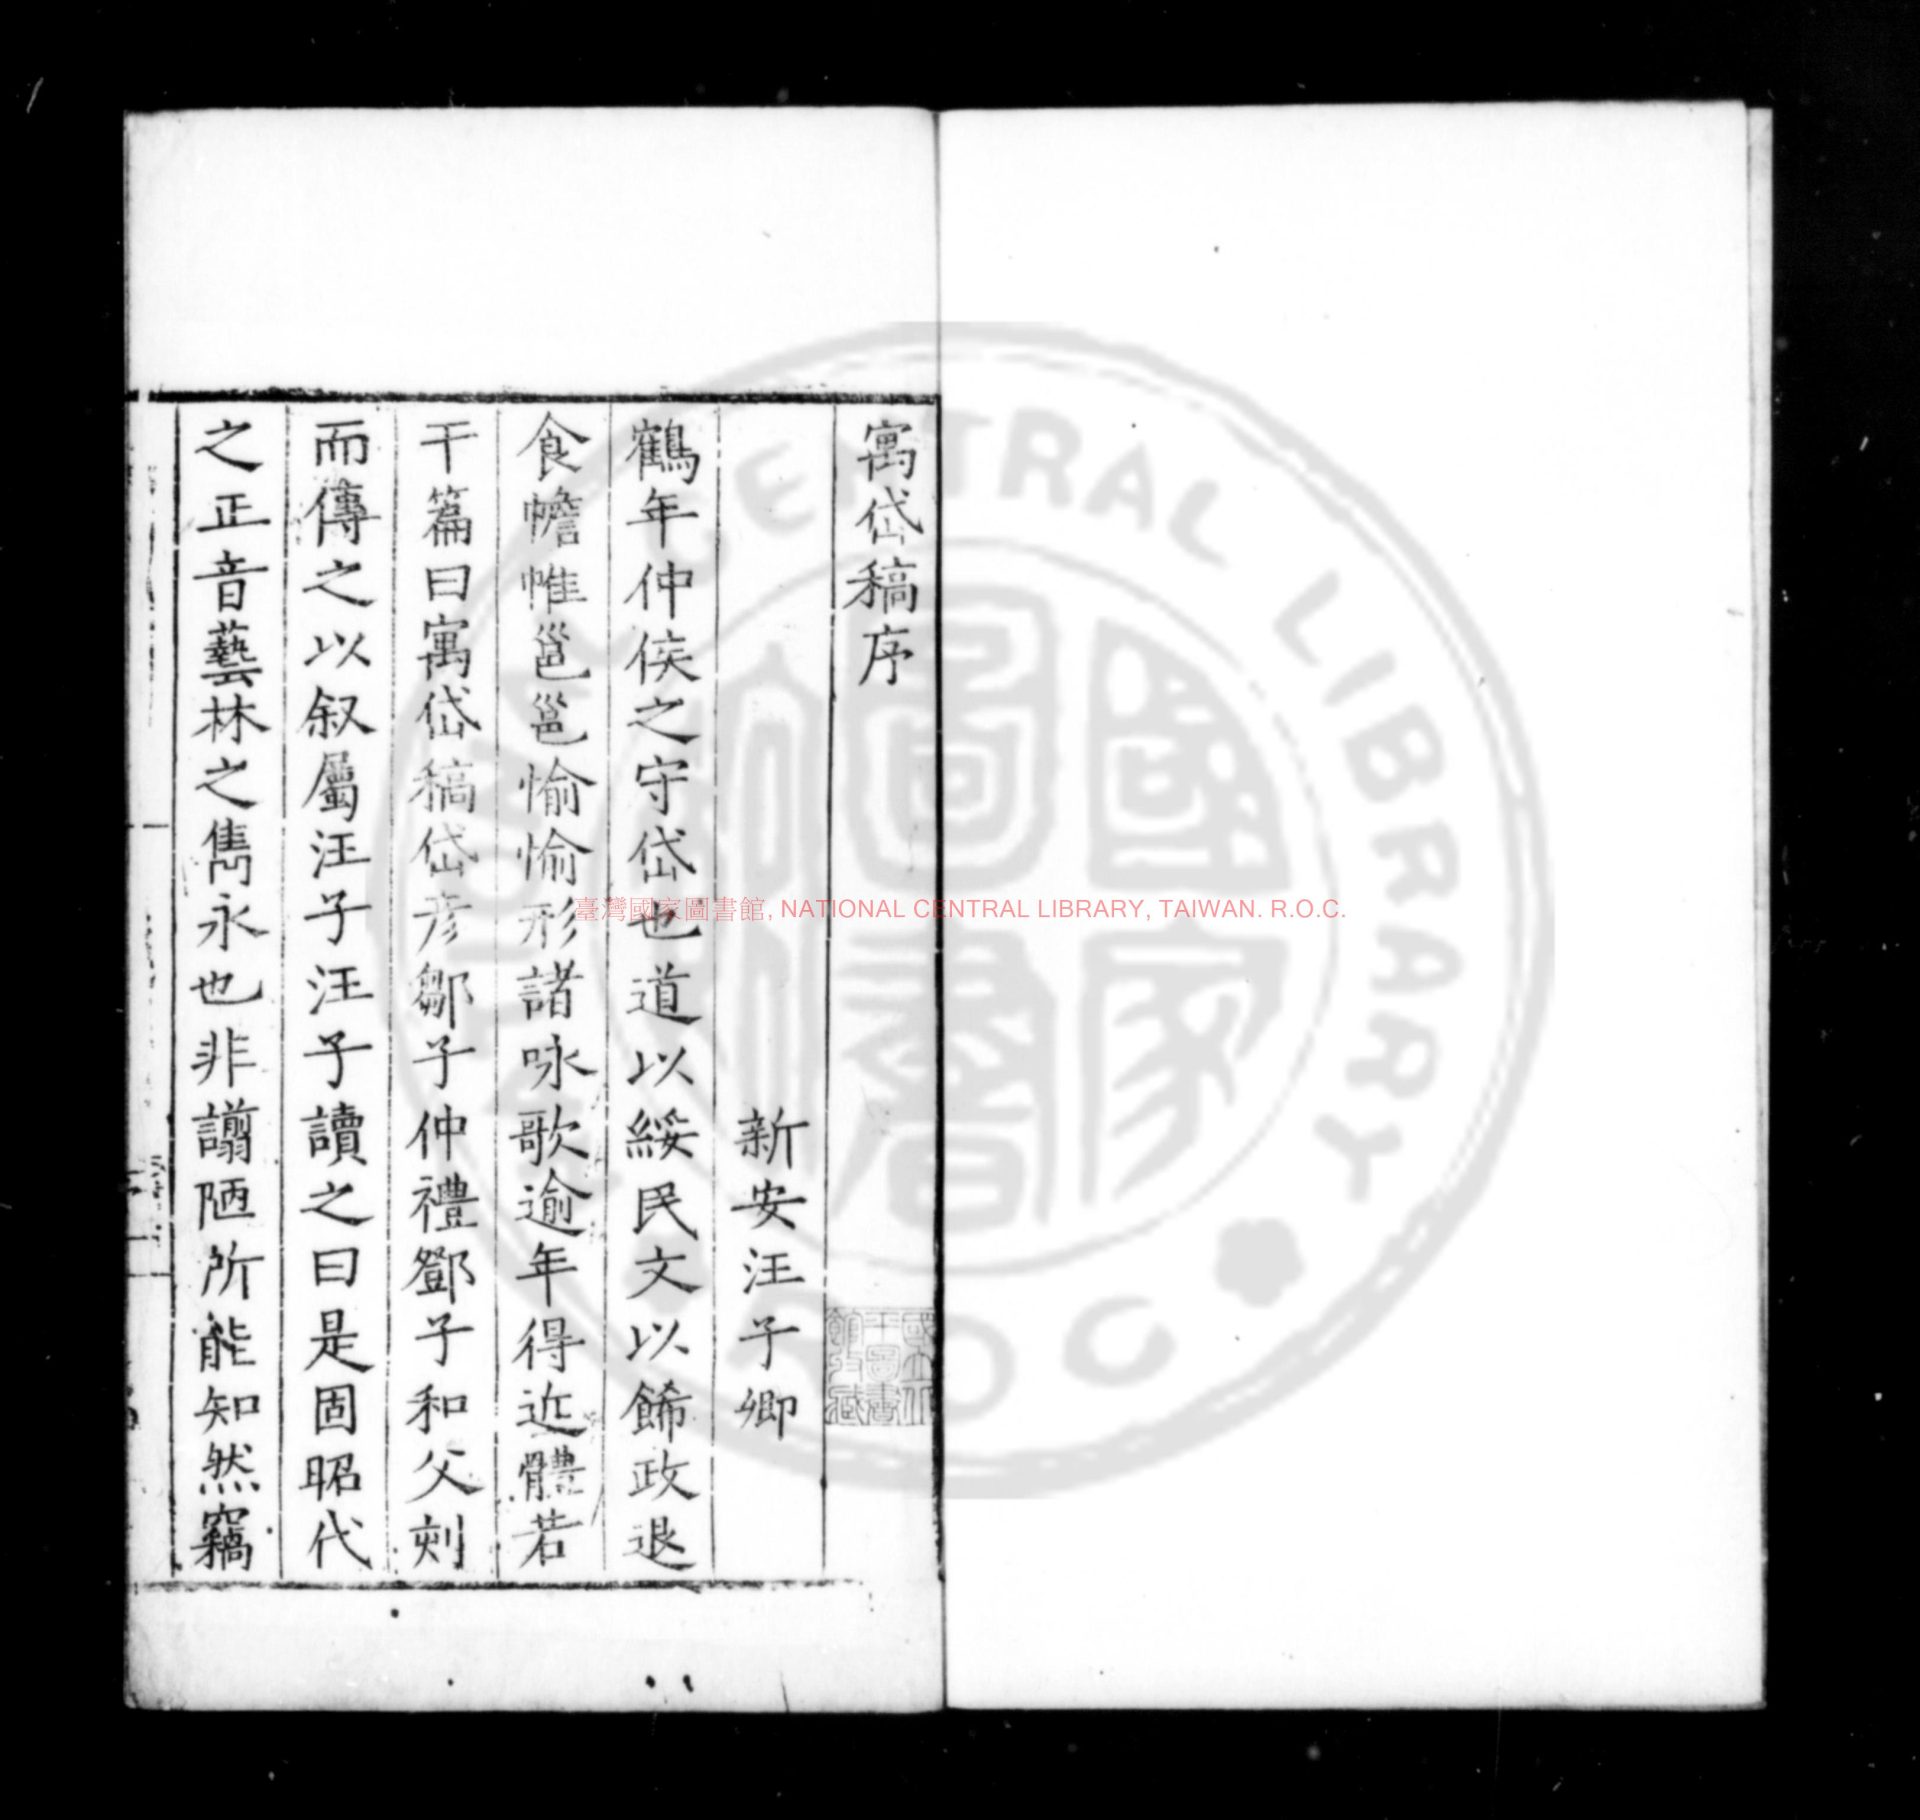 寓岱稿序
新安汪子卿
鶴年仲侯之守岱也道以綏民文以餙政退
食幨帷邕邕愉愉形諸咏歌逾年得近體若
干篇曰寓岱稿岱彦鄒子仲禮鄧子和父刻
而傳之以叙屬汪子汪子讀之曰是固昭代
之正音藝林之雋永也非謭陋所能知然竊
臺灣國家圖書館, NATIONAL CENTRAL LIBRARY, TAIWAN. R.O.C.